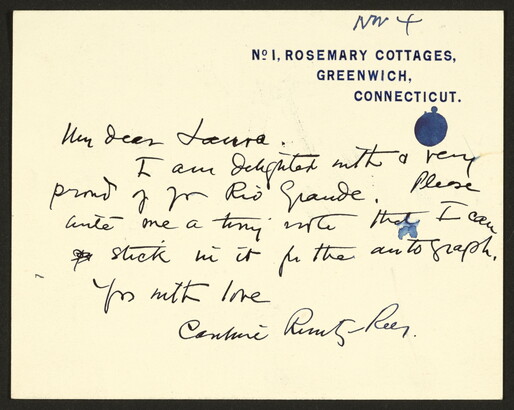 Nov 4
No 1, ROSEMARY COTTAGES,
GREENWICH,
CONNECTICUT.
My dear Laura.
I am delighted with & very
proud of yr Rio Grande. Please
write me a tiny note that I can
stick in it for the autograph.
Yrs with love
Caroline Ruutz-Rees.